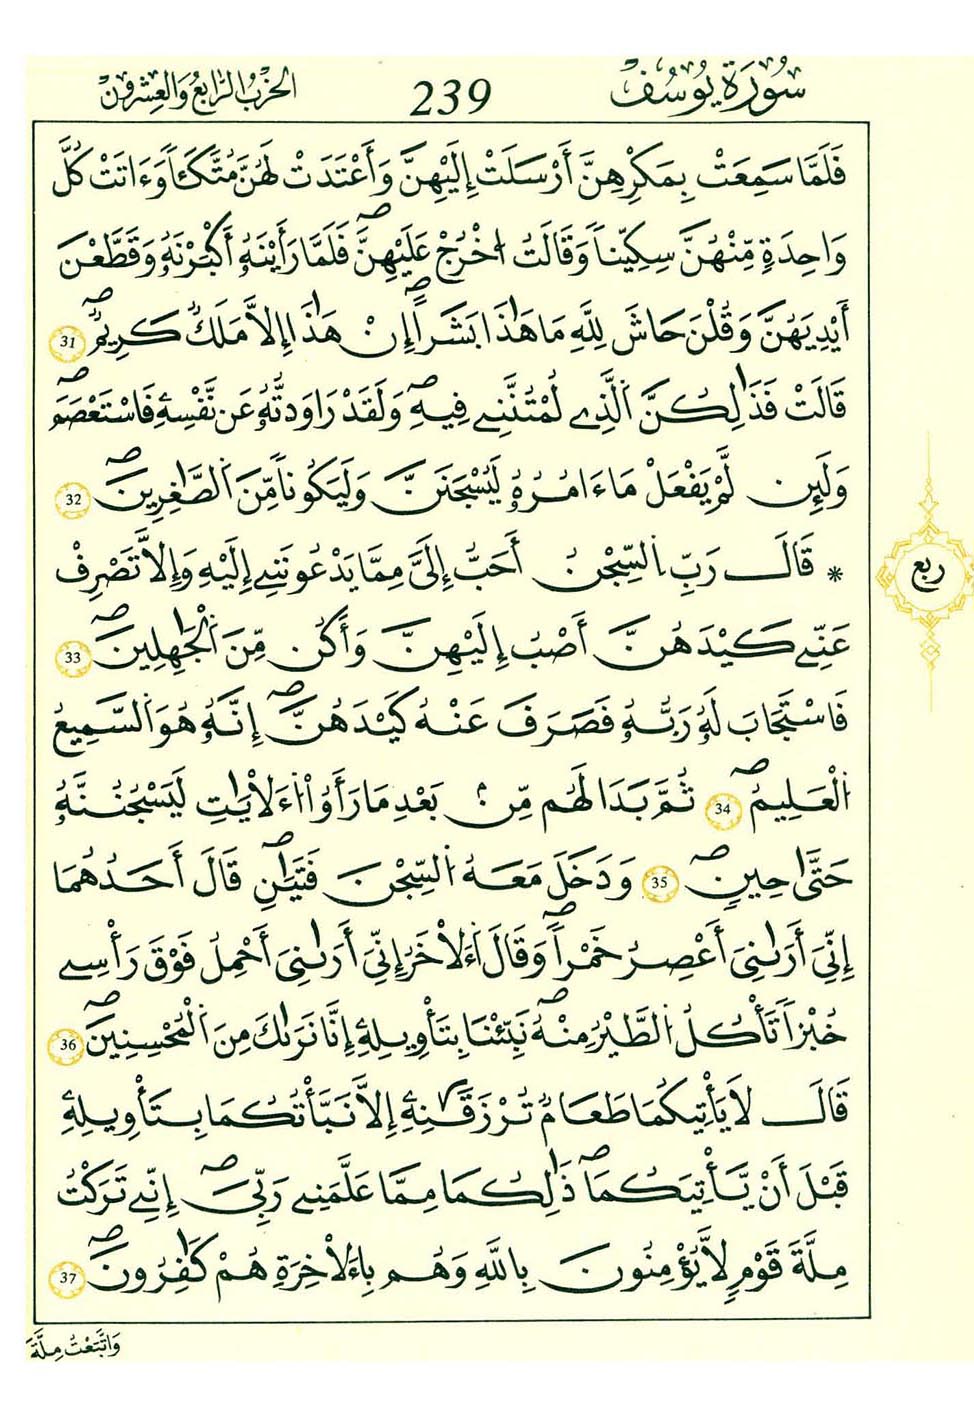 سُورَةُ يُوسُفَ 239 الحِزْبُ الرَّابِعُ وَالعِشْرُونَ
فَلَمَّا سَمِعَتْ بِمَكْرِهِنَّ أَرْسَلَتْ إِلَيْهِنَّ وَأَعْتَدَتْ لَهُنَّ مُتَّكَـٔاً وَءَاتَتْ كُلَّ
وَاحِدَةٍ مِّنْهُنَّ سِكِّيناً وَقَالَتُ اخْرُجْ عَلَيْهِنَّ فَلَمَّا رَأَيْنَهُۥٓ أَكْبَرْنَهُۥ وَقَطَّعْنَ
أَيْدِيَهُنَّ وَقُلْنَ حَاشَ لِلهِ مَا هَٰذَا بَشَراً إِنْ هَٰذَا إِلاَّ مَلَكٌ كَرِيمٌ 31
قَالَتْ فَذَٰلِكُنَّ اَلَّذِے لُمْتُنَّنِے فِيهِ وَلَقَدْ رَاوَدتُّهُۥ عَن نَّفْسِهِۦ فَاسْتَعْصَمَ
وَلَئِن لَّمْ يَفْعَلْ مَا ءَامُرُهُۥ لَيُسْجَنَنَّ وَلَيَكُوناً مِّنَ اَلصَّٰغِرِينَ 32
* قَالَ رَبِّ اِلسِّجْنُ أَحَبُّ إِلَيَّ مِمَّا يَدْعُونَنِے إِلَيْهِ وَإِلاَّ تَصْرِفْ
عَنِّے كَيْدَهُنَّ أَصْبُ إِلَيْهِنَّ وَأَكُن مِّنَ اَلْجَٰهِلِينَ 33
فَاسْتَجَابَ لَهُۥ رَبُّهُۥ فَصَرَفَ عَنْهُ كَيْدَهُنَّ إِنَّهُۥ هُوَ اَلسَّمِيعُ
اُلْعَلِيمُ 34 ثُمَّ بَدَا لَهُم مِّنۢ بَعْدِ مَا رَأَوُاْ اُءَلاْيَٰتِ لَيَسْجُنُنَّهُۥ
حَتَّىٰ حِينٍ 35 وَدَخَلَ مَعَهُ اُلسِّجْنَ فَتَيَٰنِ قَالَ أَحَدُهُمَا
إِنِّيَ أَرَىٰنِيَ أَعْصِرُ خَمْراً وَقَالَ اَءَلاْخَرُ إِنِّيَ أَرَىٰنِيَ أَحْمِلُ فَوْقَ رَأْسِے
خُبْزاً تَأْكُلُ اُلطَّيْرُ مِنْهُ نَبِّئْنَا بِتَأْوِيلِهِۦٓ إِنَّا نَرَىٰكَ مِنَ اَلْمُحْسِنِينَ 36
قَالَ لاَ يَأْتِيكُمَا طَعَامٌ تُرْزَقَٰنِهِۦٓ إِلاَّ نَبَّأْتُكُمَا بِتَأْوِيلِهِۦ
قَبْلَ أَنْ يَّأْتِيَكُمَا ذَٰلِكُمَا مِمَّا عَلَّمَنِے رَبِّيَ إِنِّے تَرَكْتُ
مِلَّةَ قَوْمٍ لاَّ يُؤْمِنُونَ بِاللَّهِ وَهُم بِاءَلاْخِرَةِ هُمْ كَٰفِرُونَ 37
وَاتَّبَعْتُ مِلَّةَ
ربع